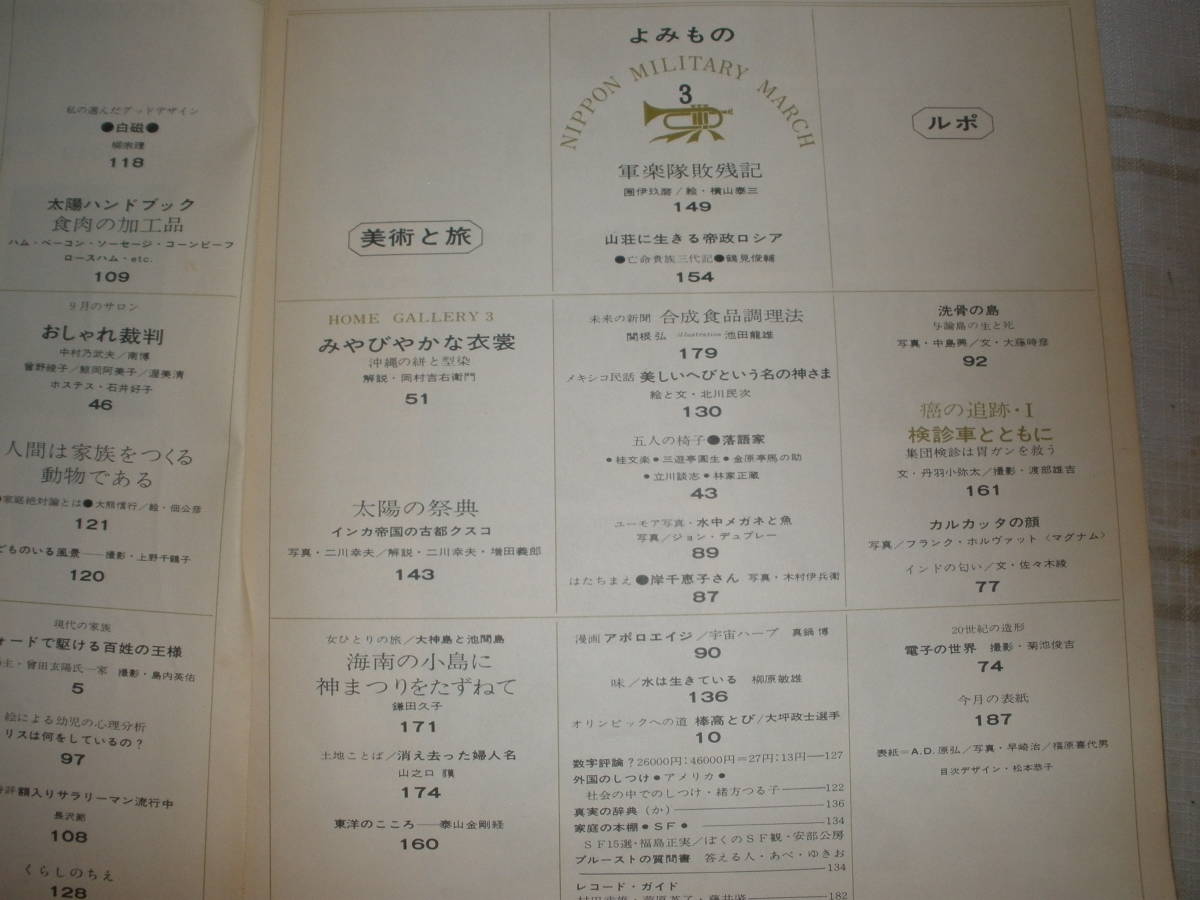 私の選んだグッドデザイン
●白磁●
柳宗理
118
太陽ハンドブック
食肉の加工品
ハム・ベーコン・ソーセージ・コーンビーフ
ロースハム・etc.
109
9月のサロン
おしゃれ裁判
中村乃武夫/南博
曾野綾子/鯨岡阿美子/渥美清
ホステス・石井好子
46
人間は家族をつくる
動物である
家庭絶対論とは●大熊信行/絵・佃公彦
121
どものいる風景——撮影・上野千鶴子
120
現代の家族
ォードで駆ける百姓の王様
主・曾田玄陽氏一家 撮影・島内英佑
5
絵による幼児の心理分析
リスは何をしているの?
97
評額入りサラリーマン流行中
長沢節
108
くらしのちえ
128
美術と旅
HOME GALLERY 3
みやびやかな衣裳
沖縄の絣と型染
解説・岡村吉右衛門
51
太陽の祭典
インカ帝国の古都クスコ
写真・二川幸夫/解説・二川幸夫・増田義郎
143
女ひとりの旅/大神島と池間島
海南の小島に
神まつりをたずねて
鎌田久子
171
土地ことば/消え去った婦人名
山之口 貘
174
東洋のこころ——泰山金剛経
160
よみもの
NIPPON MILITARY MARCH
3
軍楽隊敗残記
團伊玖磨/絵・横山泰三
149
山荘に生きる帝政ロシア
●亡命貴族三代記●鶴見俊輔
154
未来の新聞 合成食品調理法
関根弘 illustration 池田龍雄
179
メキシコ民話 美しいへびという名の神さま
絵と文・北川民次
130
五人の椅子●落語家
●桂文楽●三遊亭圓生●金原亭馬の助
●立川談志●林家正蔵
43
ユーモア写真・水中メガネと魚
写真/ジョン・デュプレー
89
はたちまえ●岸千恵子さん 写真・木村伊兵衛
87
漫画 アポロエイジ/宇宙ハープ 真鍋博
90
味/水は生きている 柳原敏雄
136
オリンピックへの道 棒高とび/大坪政士選手
10
数字評論?26000円:46000円=27円:13円—127
外国のしつけ●アメリカ●
社会の中でのしつけ・緒方つる子———122
真実の辞典(か)———136
家庭の本棚●SF●———134
SF15選・福島正実/ぼくのSF観・安部公房
プルーストの質問書 答える人・あべ・ゆきお
———134
レコード・ガイド
182
ルポ
洗骨の島
与論島の生と死
写真・中島興/文・大藤時彦
92
癌の追跡・I
検診車とともに
集団検診は胃ガンを救う
文・丹羽小弥太/撮影・渡部雄吉
161
カルカッタの顔
写真/フランク・ホルヴァット〈マグナム〉
インドの匂い/文・佐々木綾
77
20世紀の造形
電子の世界 撮影・菊池俊吉
74
今月の表紙
187
表紙=A.D.原弘/写真・早崎治/櫃原喜代男
目次デザイン・松本恭子